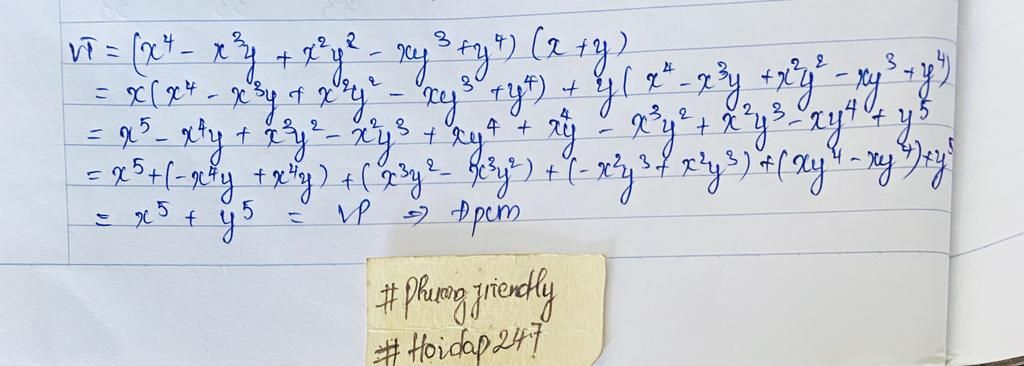 VT = (x⁴ - x³y + x²y² - xy³ + y⁴) (x + y)
= x(x⁴ - x³y + x²y² - xy³ + y⁴) + y(x⁴ - x³y + x²y² - xy³ + y⁴)
= x⁵ - x⁴y + x³y² - x²y³ + xy⁴ + x⁴y - x³y² + x²y³ - xy⁴ + y⁵
= x⁵ + (-x⁴y + x⁴y) + (x³y² - x³y²) + (-x²y³ + x²y³) + (xy⁴ - xy⁴) + y⁵
= x⁵ + y⁵ = VP ⇒ Đpcm
# Phuong friendly
# Hoidap247